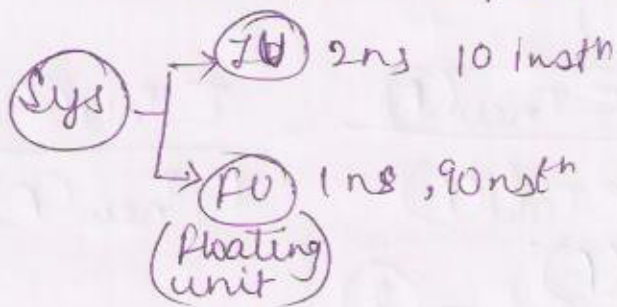 Sys
IU 2ns 10 instn
FU 1ns, 90 nstn
(Floating
unit)